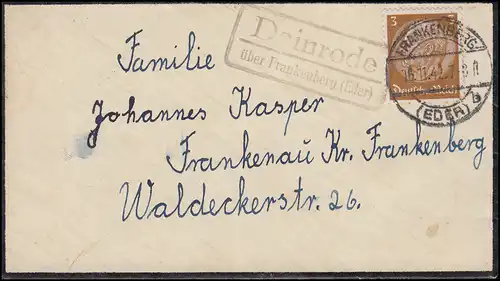 Dainrode
über Frankenberg (Eder)
3
Deutsches Reich
FRANKENBERG
(EDER)
b
Familie
Johannes Kasper
Frankenau Kr. Frankenberg
Waldeckerstr. 26.